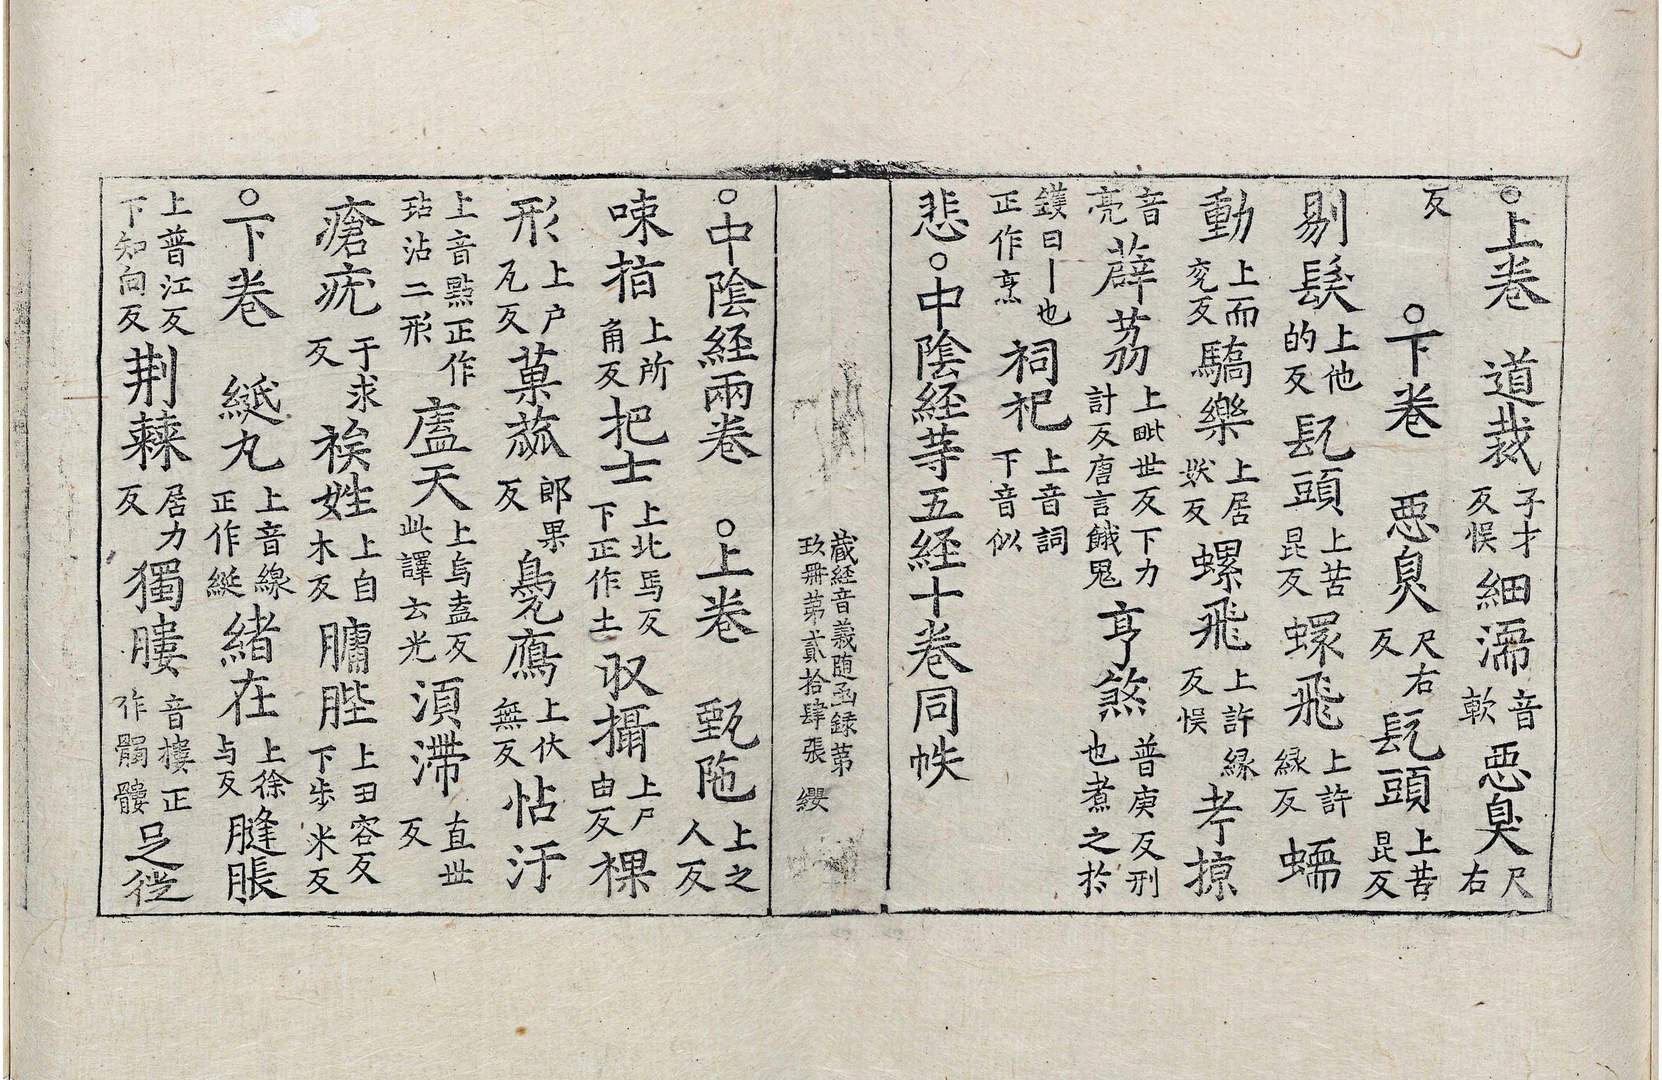 ○上卷　道裁子才反悮細濡音軟惡臭尺右
反　○下卷　惡臭尺右反髡頭上苦昆反
剔髮上他的反髡頭上苦昆反蠉飛上許緣反蠕
動上而兖反驕樂上居妖反螺飛上許緣反悮考掠
音亮薜荔上毗世反下力計反唐言餓鬼亨煞普庚反刑也煮之於
鑊曰丨也正作烹祠祀上音詞下音似
悲○中陰経䓁五経十卷同帙
藏経音義随函録第
玖冊第貳拾肆張　纓
○中陰経兩卷　○上卷　甄陁上之人反
㖒指上所角反把士上北馬反下正作土収攝上尸由反裸
形上户瓦反菓蓏郎果反鳬鴈上伏無反怗汙
上音點正作玷沾二形廅天上烏盍反此譯云光湏滯直世反
瘡疣于求反族姓上自木反膅䏶上田容反下步米反
○下卷　綖丸上音線正作綖緒在上徐与反膖脹
上普江反下知向反荆棘居力反獨膢音樓正作髑髏足徔